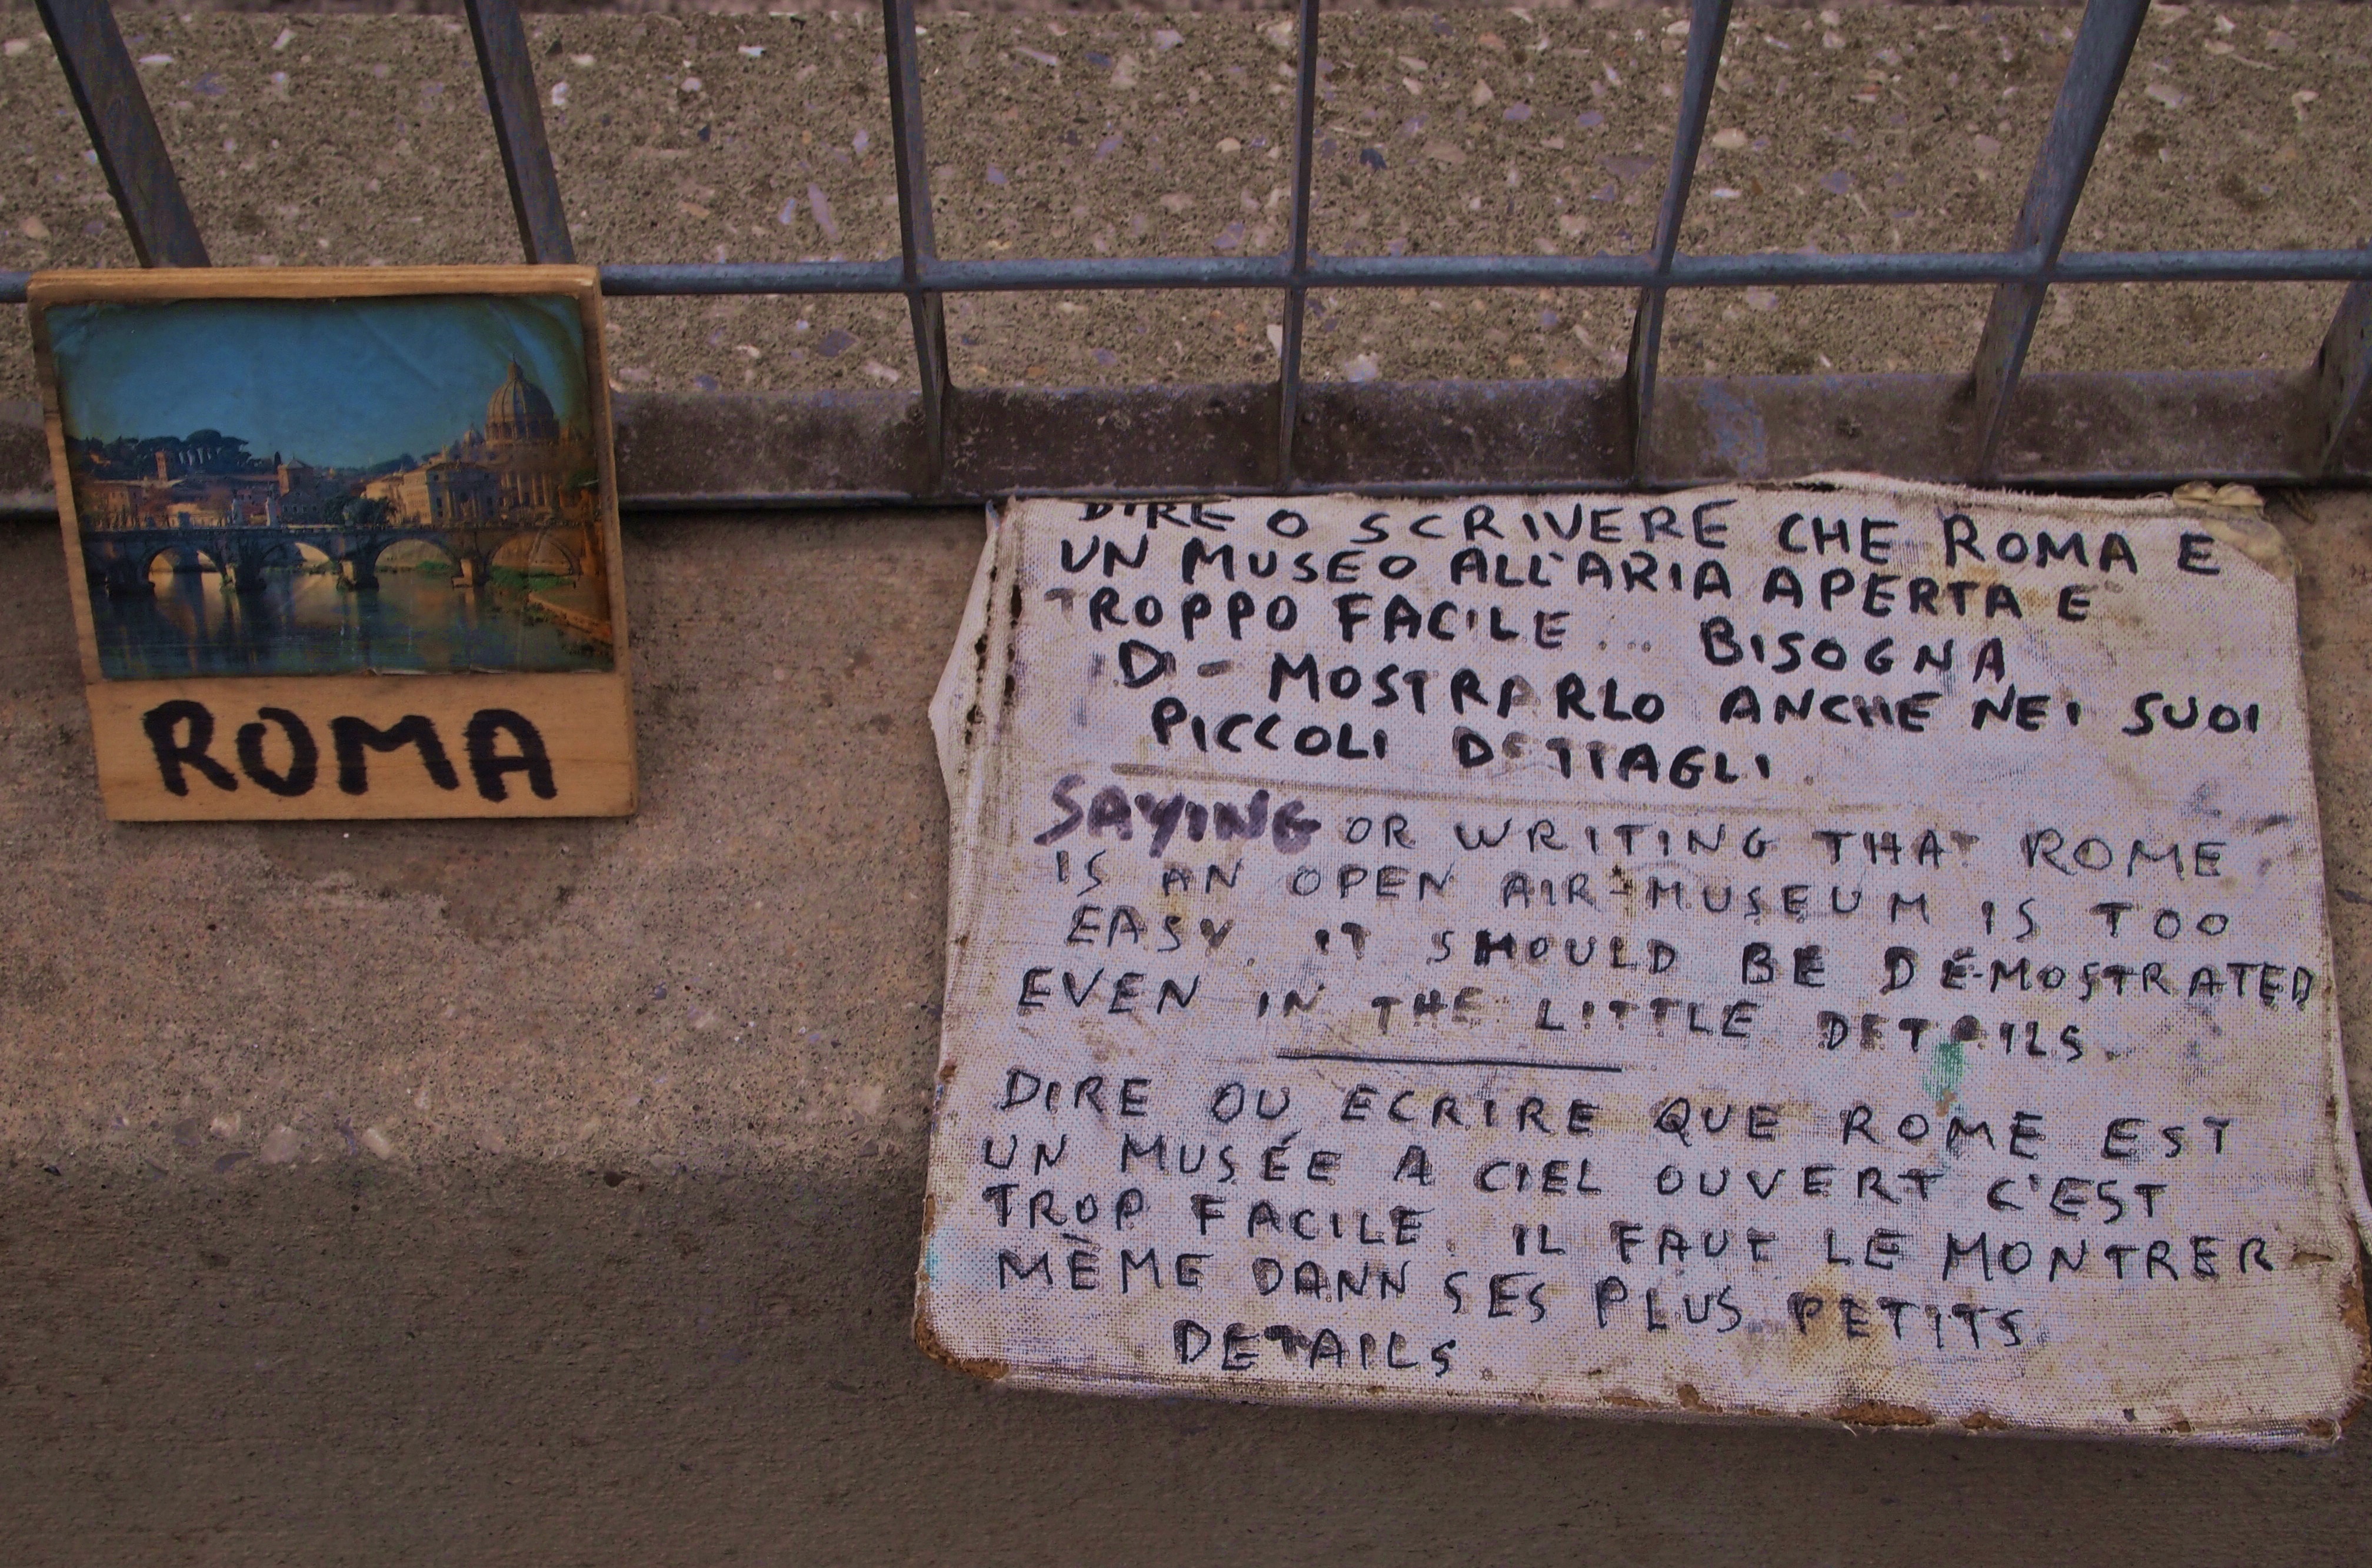 ROMA
DIRE O SCRIVERE CHE ROMA E
UN MUSEO ALL'ARIA APERTA E
TROPPO FACILE... BISOGNA
DI-MOSTRARLO ANCHE NEI SUOI
PICCOLI DETTAGLI.
SAYING OR WRITING THAT ROME
IS AN OPEN AIR-MUSEUM IS TOO
EASY. IT SHOULD BE DE-MOSTRATED
EVEN IN THE LITTLE DETAILS.
DIRE OU ECRIRE QUE ROME EST
UN MUSÉE A CIEL OUVERT C'EST
TROP FACILE. IL FAUT LE MONTRER
MÈME DANN SES PLUS PETITS
DETAILS.